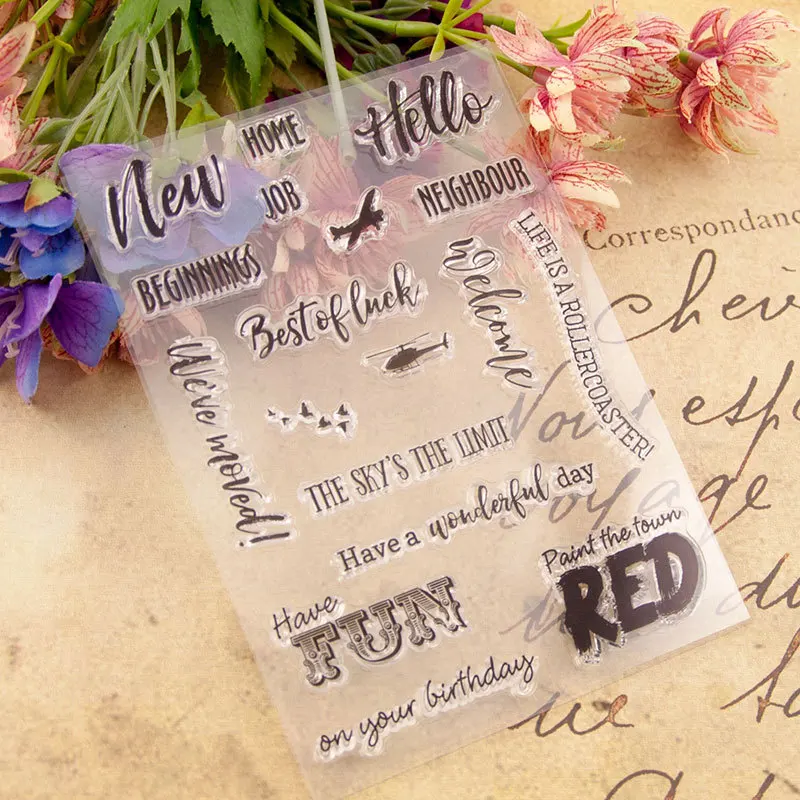 Hello
HOME
New
JOB
NEIGHBOUR
BEGINNINGS
Best of luck
Welcome
LIFE IS A ROLLERCOASTER!
We've moved!
THE SKY'S THE LIMIT
Have a wonderful day
Paint the town
RED
Have
FUN
on your birthday
Correspondanc
chevi
Nous esp
voyage